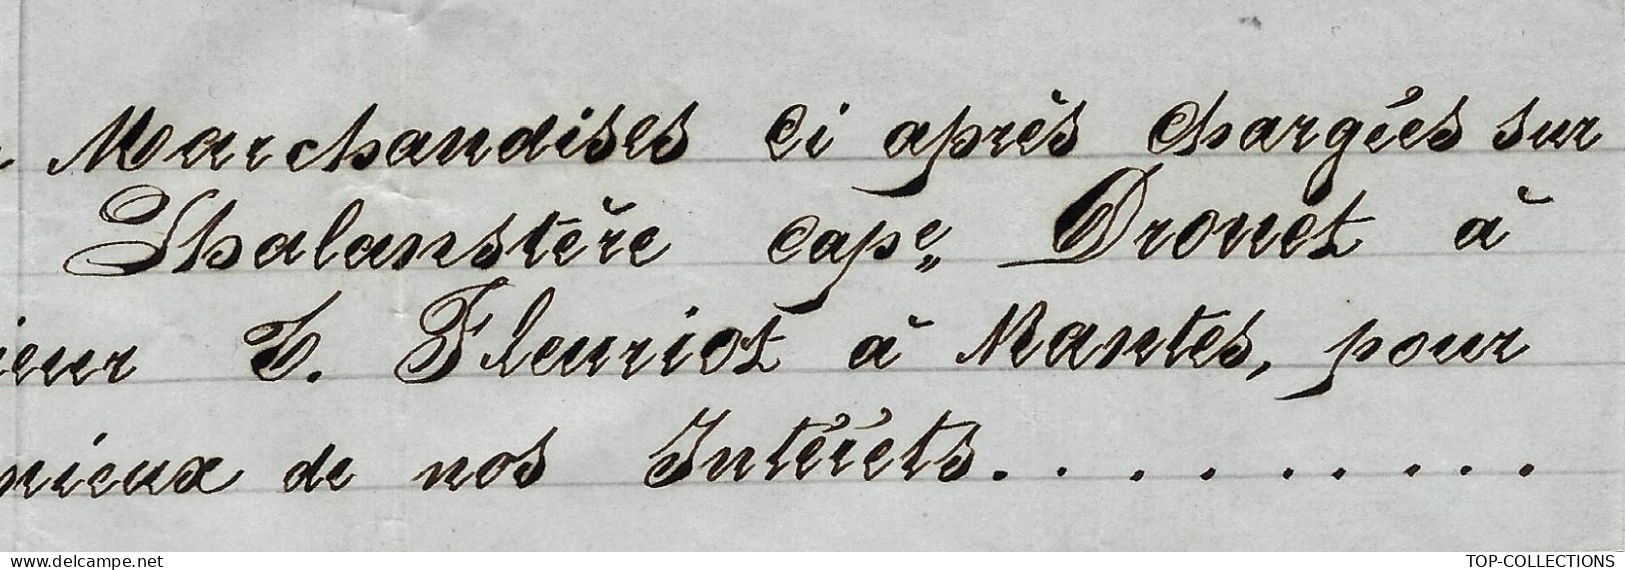 Marchandises ci après chargées sur
Phalanstère cap.e Drouet à
ieur T. Fleuriot à Nantes, pour
mieux de nos Intérêts..........
TOP-COLLECTIONS